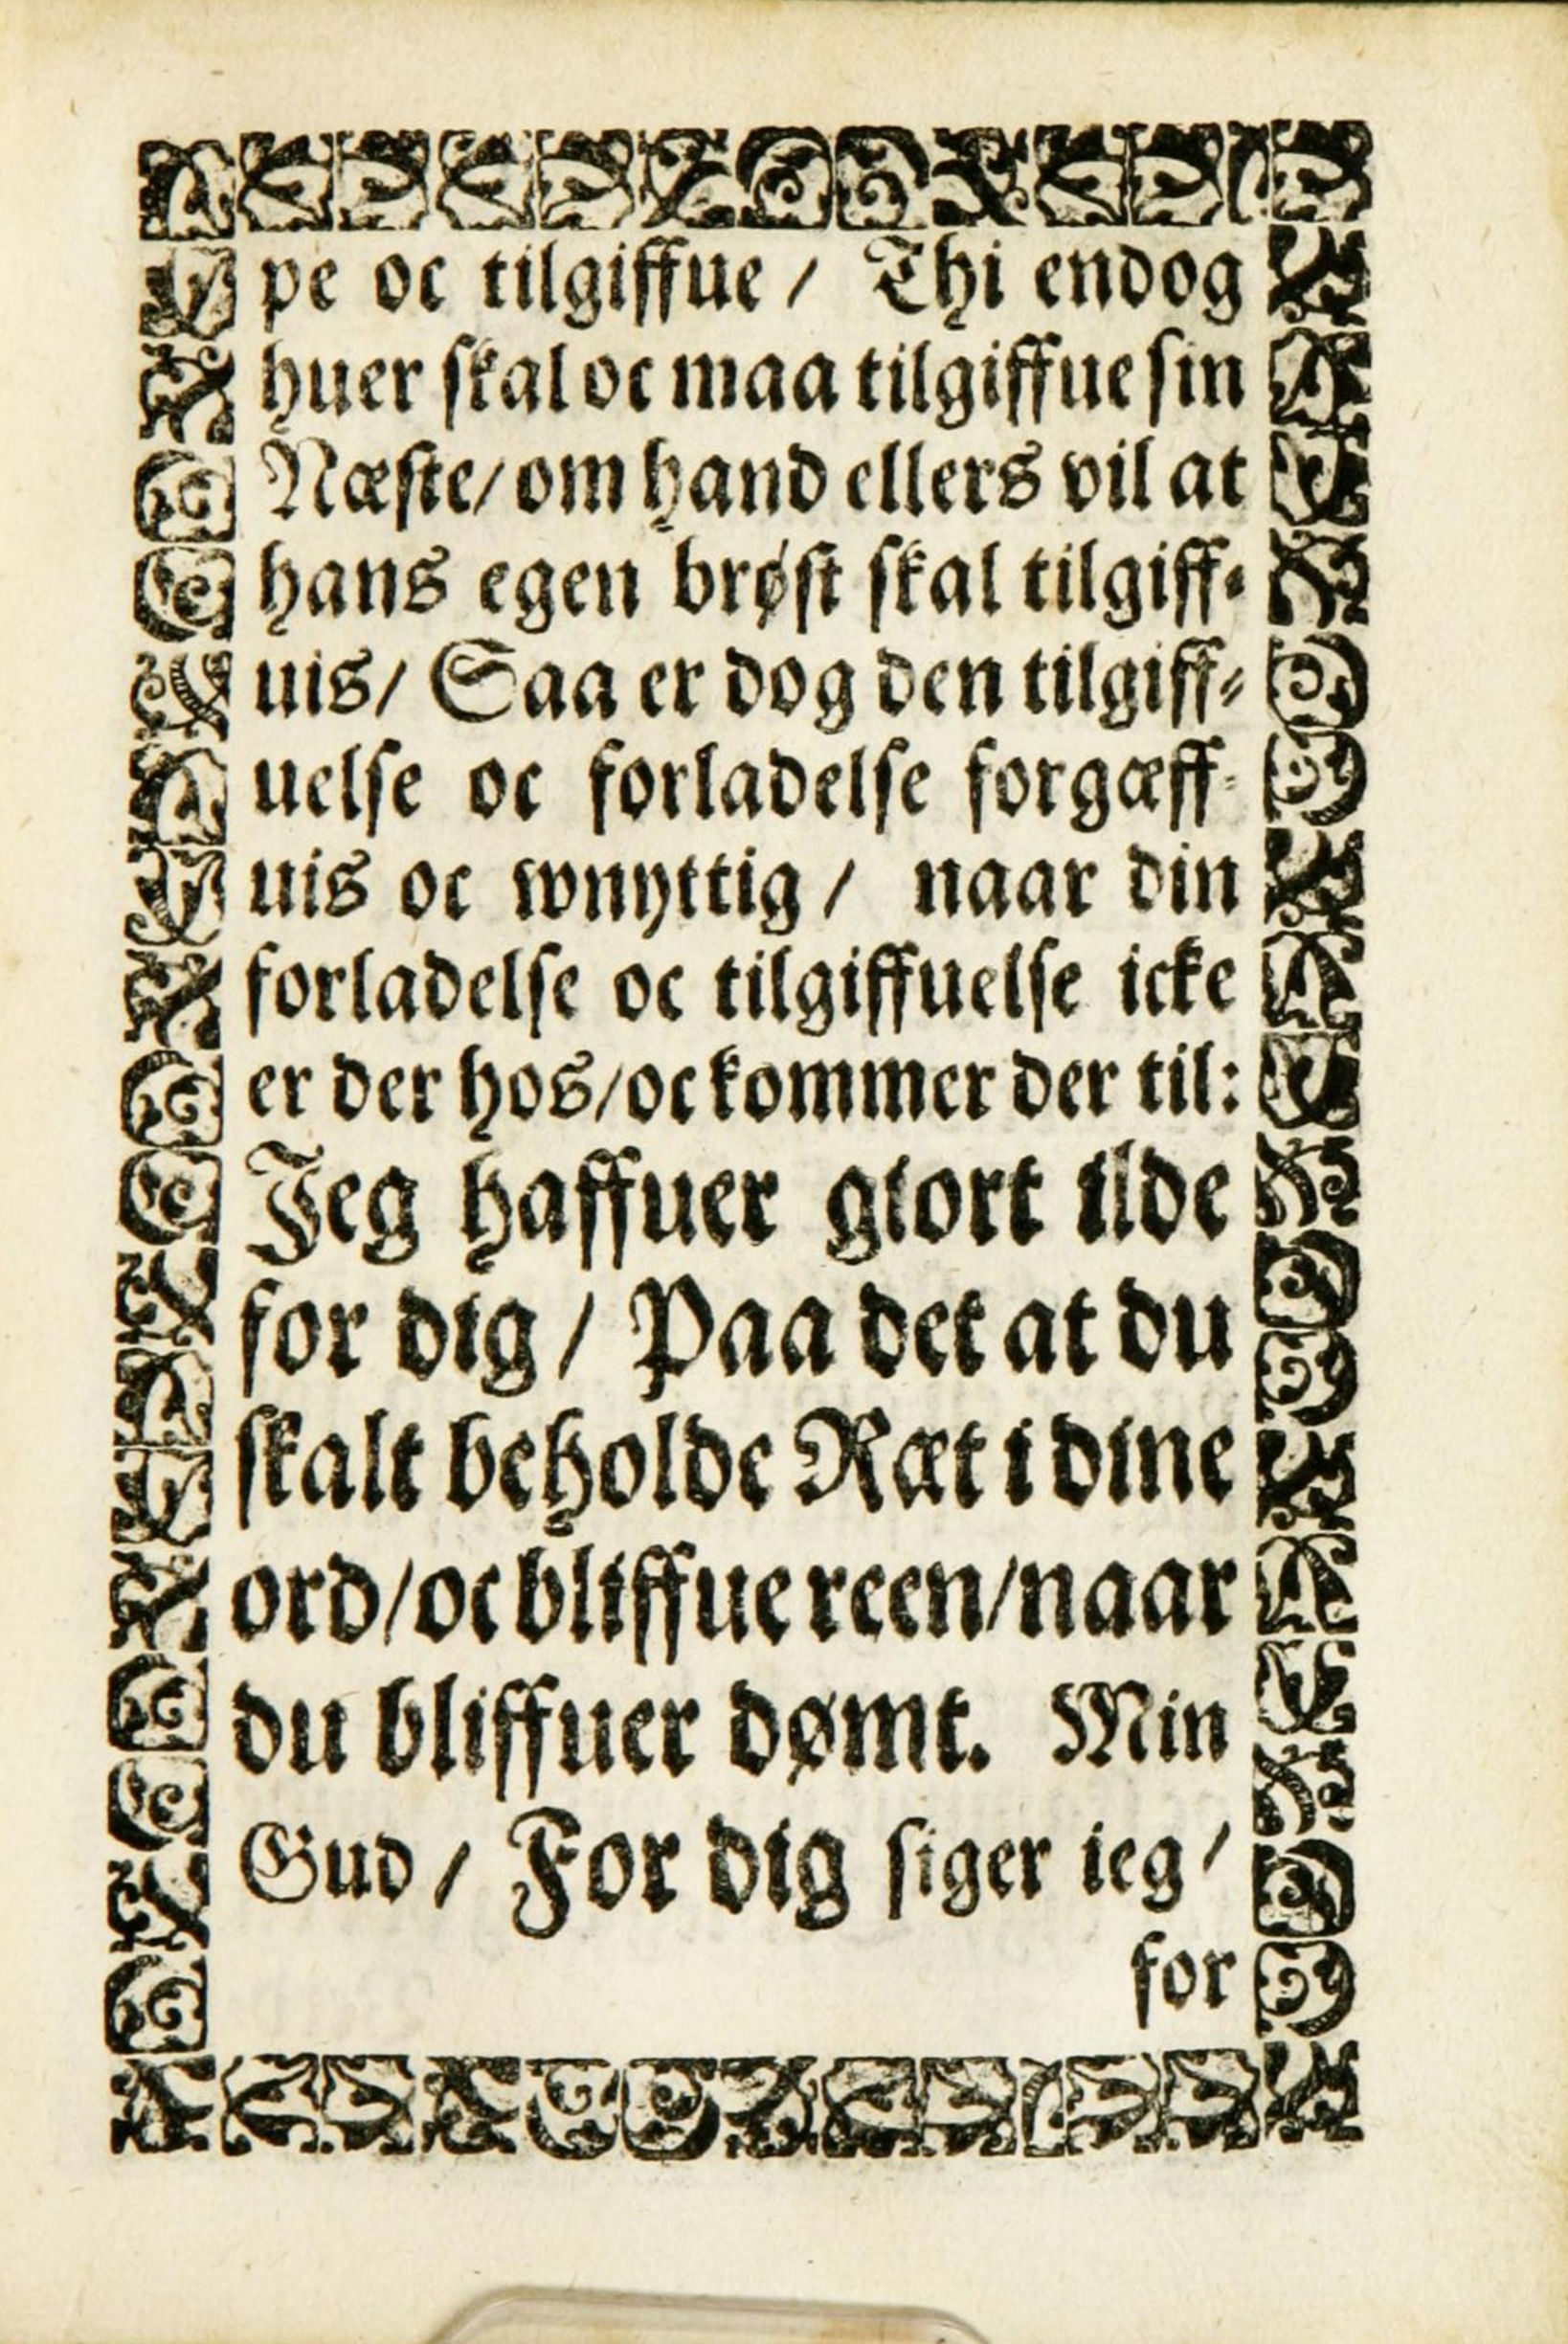 pe oc tilgiffue / Thi endog
huer skal oc maa tilgiffue sin
Næste/ om hand ellers vil at
hans egen brøst skal tilgiff-
uis/ Saa er dog den tilgiff-
uelse oc forladelse forgæff-
uis oc wnyttig / naar din
forladelse oc tilgiffuelse icke
er der hos/ oc kommer der til:
Jeg haffuer giort ilde
for dig / Paa det at du
skalt beholde Ræt i dine
ord/ oc bliffue reen/ naar
du bliffuer dømt. Min
Gud / For dig siger ieg /
for